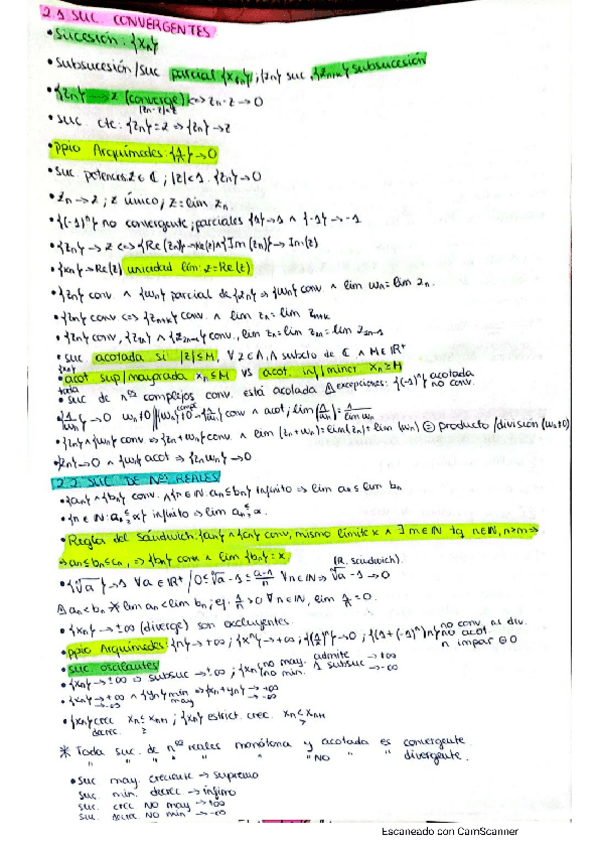 2.1 SUC. CONVERGENTES
• Sucesión: {xn}
• Subsucesión/suc parcial {xσn}; {zn} suc, {zn+k} subsucesión
• {zn} → z (converge) <=> zn - z → 0
|zn - z| < ε
• suc. cte: {zn} = z => {zn} → z
• ppio Arquímedes: {1/n} → 0
• suc potencias z ∈ ℂ; |z| < 1. {zn} → 0
• zn → z; z único; z = lim zn.
• {(-1)ⁿ} no convergente; parciales {1} → 1 ∧ {-1} → -1
• {zn} → z <=> {Re(zn)} → Re(z) ∧ {Im(zn)} → Im(z)
• {xn} → Re(z) unicidad lím: z = Re(z)
• {zn} conv. ∧ {wn} parcial de {zn} => {wn} conv ∧ lim wn = lim zn.
• {zn} conv <=> {zn+k} conv. ∧ lim zn = lim zn+k
• {zn} conv, {z2n} ∧ {z2n-1} conv., lim zn = lim z2n = lim z2n-1
• suc acotada si |z| ≤ M, ∀ z ∈ A, A subcto de ℂ ∧ M ∈ ℝ+
• acot sup/mayorada xn ≤ M vs acot. inf/minor xn ≥ M
• suc de nos complejos conv. está acotada ⚠ excepciones: {(-1)ⁿ} acotada no conv.
• {1/wn} → 0 wn ≠ 0 conv ∧ acot; lim(1/wn) = 1/lim wn
• {zn} ∧ {wn} conv => {zn + wn} conv ∧ lim (zn + wn) = lim(zn) + lim (wn) ⊜ producto/división (wn ≠ 0)
• {zn} → 0 ∧ {wn} acot => {zn wn} → 0.
2.2 SUC. DE Nos REALES
• {an} ∧ {bn} conv. ∧ {n ∈ ℕ: an ≤ bn} infinito => lim an ≤ lim bn
• {n ∈ ℕ: an ≤ α} infinito => lim an ≤ α.
• Regla del Sándwich: {an} ∧ {cn} conv, mismo límite x ∧ ∃ m ∈ ℕ tq n ∈ ℕ, n > m =>
=> an ≤ bn ≤ cn, => {bn} conv ∧ lim {bn} = x.
(R. sándwich).
• {ⁿ√a} → 1 ∀ a ∈ ℝ+ / 0 ≤ ⁿ√a - 1 ≤ (a-1)/n ∀ n ∈ ℕ => ⁿ√a - 1 → 0
⚠ an < bn ⇏ lim an < lim bn; ej. 1/n > 0 ∀ n ∈ ℕ, lim 1/n = 0.
• {xn} → ±∞ (diverge) son excluyentes.
• ppio Arquímedes: {n} → +∞; {xⁿ} → +∞; {(1/x)ⁿ} → 0; {(1+(-1)ⁿ)n} no conv. ni div. no acot. n impar ⊜ 0
• suc oscilantes
• {xn} → ±∞ => subsuc → ±∞; {xn} no may. no min. admite 1 subsuc → +∞ → -∞
• {xn} → +∞ → -∞ ∧ {yn} min may => {xn + yn} → +∞ → -∞
• {xn} crec decrec. xn ≤ ≥ xn+1; {xn} estrict. crec. xn < > xn+1
* Toda suc. de nos reales monótona y acotada es convergente.
" " " " " " "NO " " divergente.
• suc may. creciente → supremo
suc. min. decrec → ínfimo
suc. crec NO may → +∞
suc. decrec. NO min → -∞
Escaneado con CamScanner